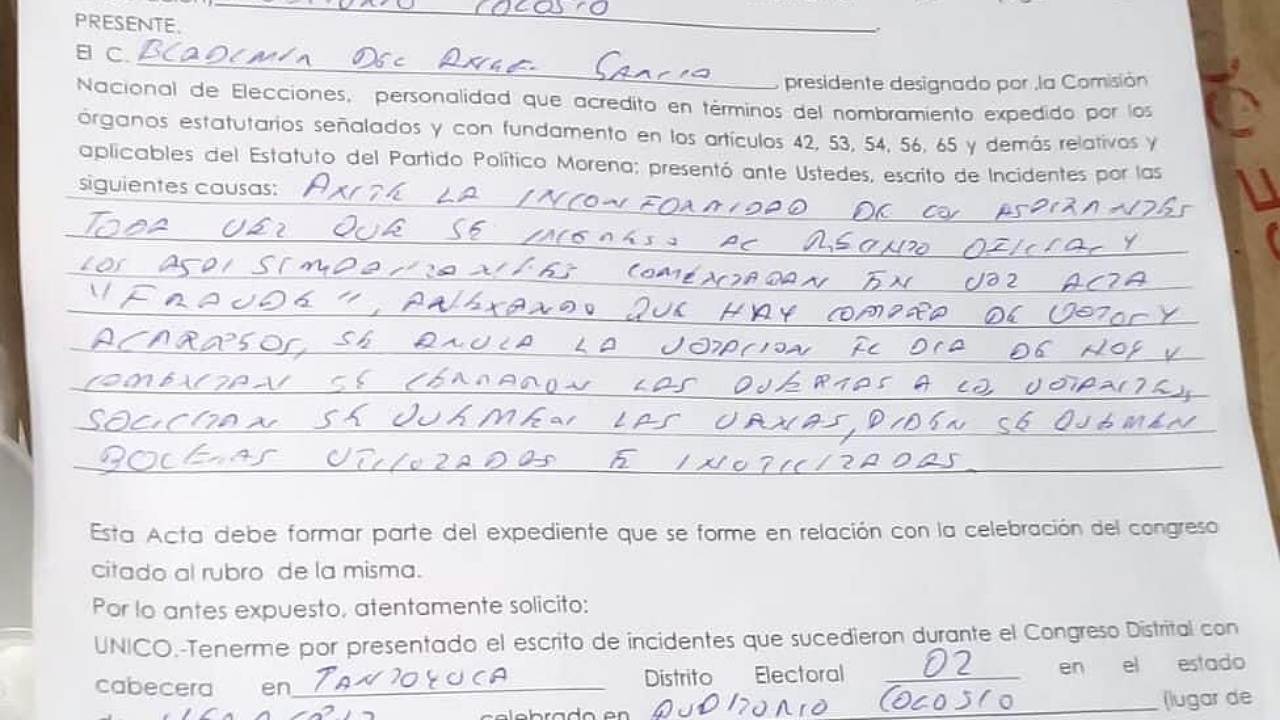 COLOSIO
PRESENTE.
El C. BLADIMIR DEL ANGEL GARCIA, presidente designado por ,la Comisión
Nacional de Elecciones, personalidad que acredito en términos del nombramiento expedido por los
órganos estatutarios señalados y con fundamento en los artículos 42, 53, 54, 56, 65 y demás relativos y
aplicables del Estatuto del Partido Político Morena; presentó ante Ustedes, escrito de Incidentes por las
siguientes causas: ANTE LA INCONFORMIDAD DE LOS ASPIRANTES
TODA VEZ QUE SE INGRESO AL RECINTO OFICIAL Y
LOS SIMPATIZANTES COMENZARAN EN VOZ ALTA
"FRAUDE", ANEXANDO QUE HAY COMPRA DE VOTOS Y
ACARREOS, SE ANULA LA VOTACION EL DIA DE HOY Y
COMENTAN SE CERRARON LAS PUERTAS A LOS VOTANTES,
SOLICITAN SE QUEMEN LAS URNAS, PIDEN SE QUEMEN
BOLETAS UTILIZADAS E INUTILIZADAS
Esta Acta debe formar parte del expediente que se forme en relación con la celebración del congreso
citado al rubro de la misma.
Por lo antes expuesto, atentamente solicito:
UNICO.-Tenerme por presentado el escrito de incidentes que sucedieron durante el Congreso Distrital con
cabecera en TANTOYUCA Distrito Electoral 02 en el estado
celebrado en AUDITORIO COLOSIO (lugar de